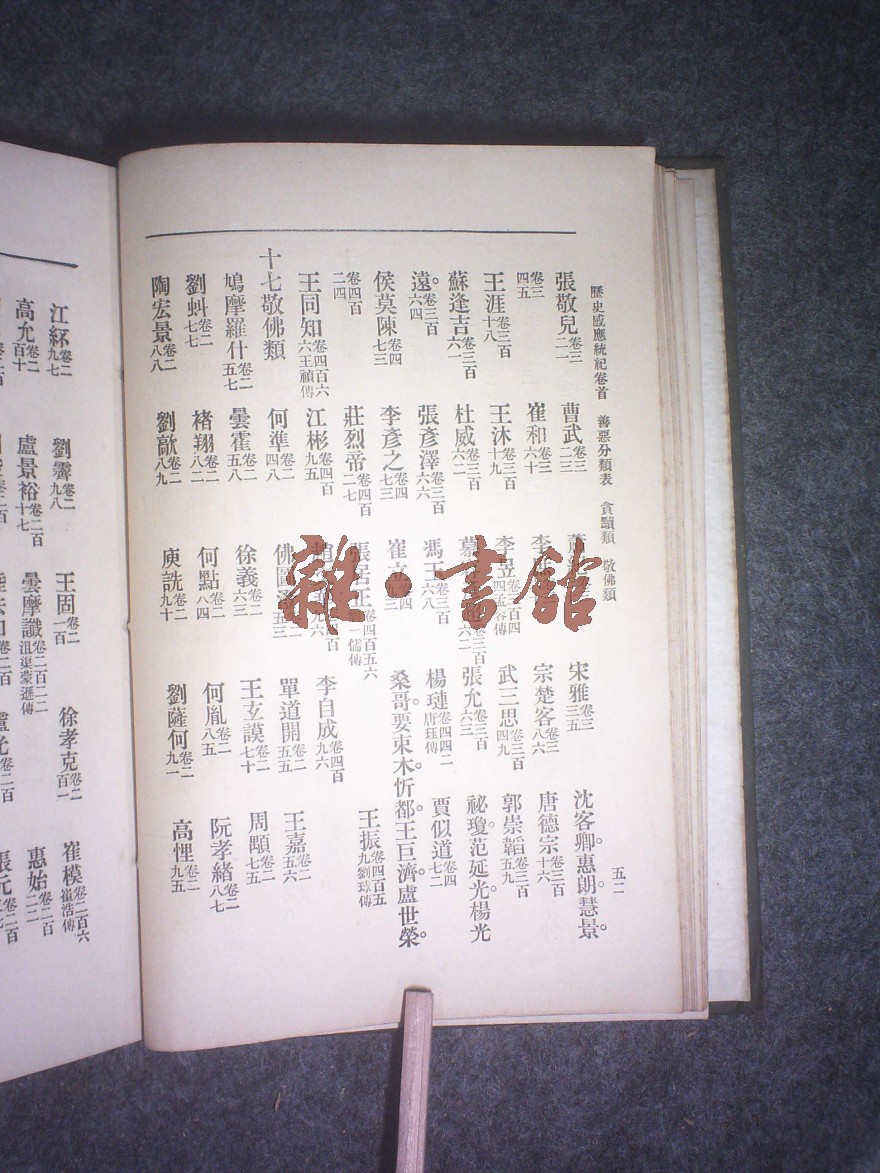 歷史感應統紀卷首 善惡分類表 貪黷類 敬佛類 五二
張敬兒卷三二一 曹武卷三二三 宋雅卷三三五 沈客卿。惠朗。慧景。
卷三四五 崔和卷三六十 宗楚客卷三八六 唐德宗卷三百十六
王涯卷三百十八 王沐卷三百十九 武三思卷三百四九 郭崇韜卷三百五九
蘇逢吉卷三百六一 杜威卷三百六二 張允卷三百六三 祕瓊。范延光。楊光
遠。卷三百六四 張彥澤卷三百六六 馮玉卷三百六八 楊璉卷四四二唐珏傳 賈似道卷四七二
侯莫陳卷四七三 李彥之卷四七三 崔立卷四 桑哥。要束木。忻都。王巨濟。盧世榮。
卷四百二四 莊烈帝卷四百二七 王振卷四百五九劉球傳
王同知卷四百六六王禎傳 江彬卷四百九五 李自成卷四百九六
十七敬佛類 何準卷二四八 佛圖 單道開卷二五五 王嘉卷二五六
鳩摩羅什卷二五七 曇霍卷二五八 徐義卷二六三 王玄謨卷二七十 周顒卷二七五
劉虯卷二七七 褚翔卷二八二 何點卷二八四 何胤卷二八五 阮孝緒卷二八七
陶宏景卷二八八 劉歊卷二八九 庾詵卷二九十 劉薩何卷二九一 高悝卷二九五
江紑卷二九七 劉霽卷二九八 王固卷二一百 徐孝克卷二百一 崔模卷二百六崔浩傳
高允卷二百十 盧景裕卷二百十七 曇摩讖卷二百二二沮渠蒙遜傳 惠始卷二百二二
雜·書館